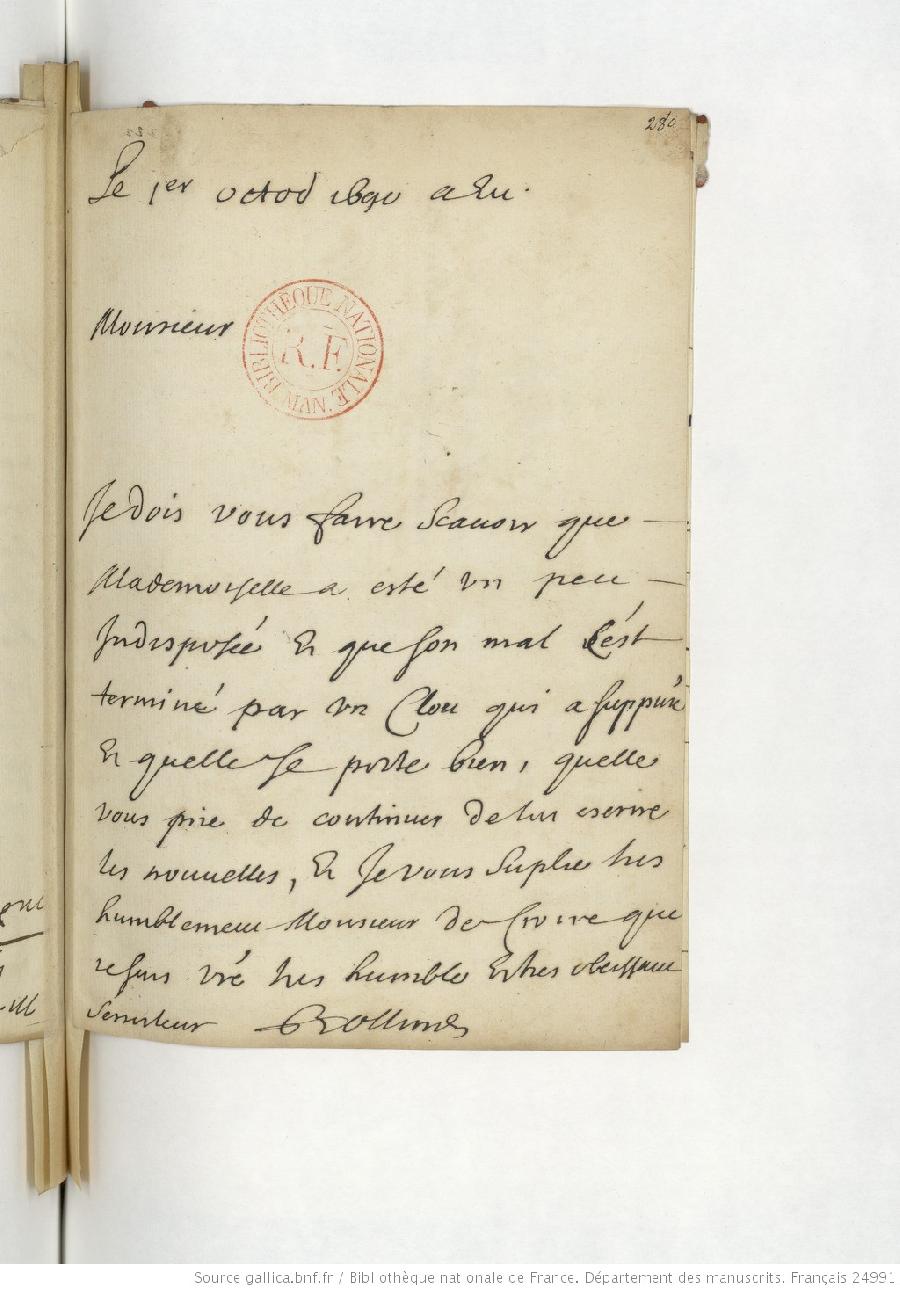 280
Le 1er octob 1690 a Eu.
Monsieur
BIBLIOTHÈQUE NATIONALE MAN.
R.F.
Je dois vous faire scauoir que
Mademoiselle a esté vn peu
Indisposée Et que son mal s'est
terminé par vn Clou qui a suppuré
Et quelle se porte bien, quelle
vous prie de continuer de luy escrire
les nouuelles, Et Je vous Suplie tres
humblement Monsieur de croire que
je suis vre tres humble Et tres obeissant
Seruiteur
Source gallica.bnf.fr / Bibliothèque nationale de France. Département des manuscrits. Français 24991